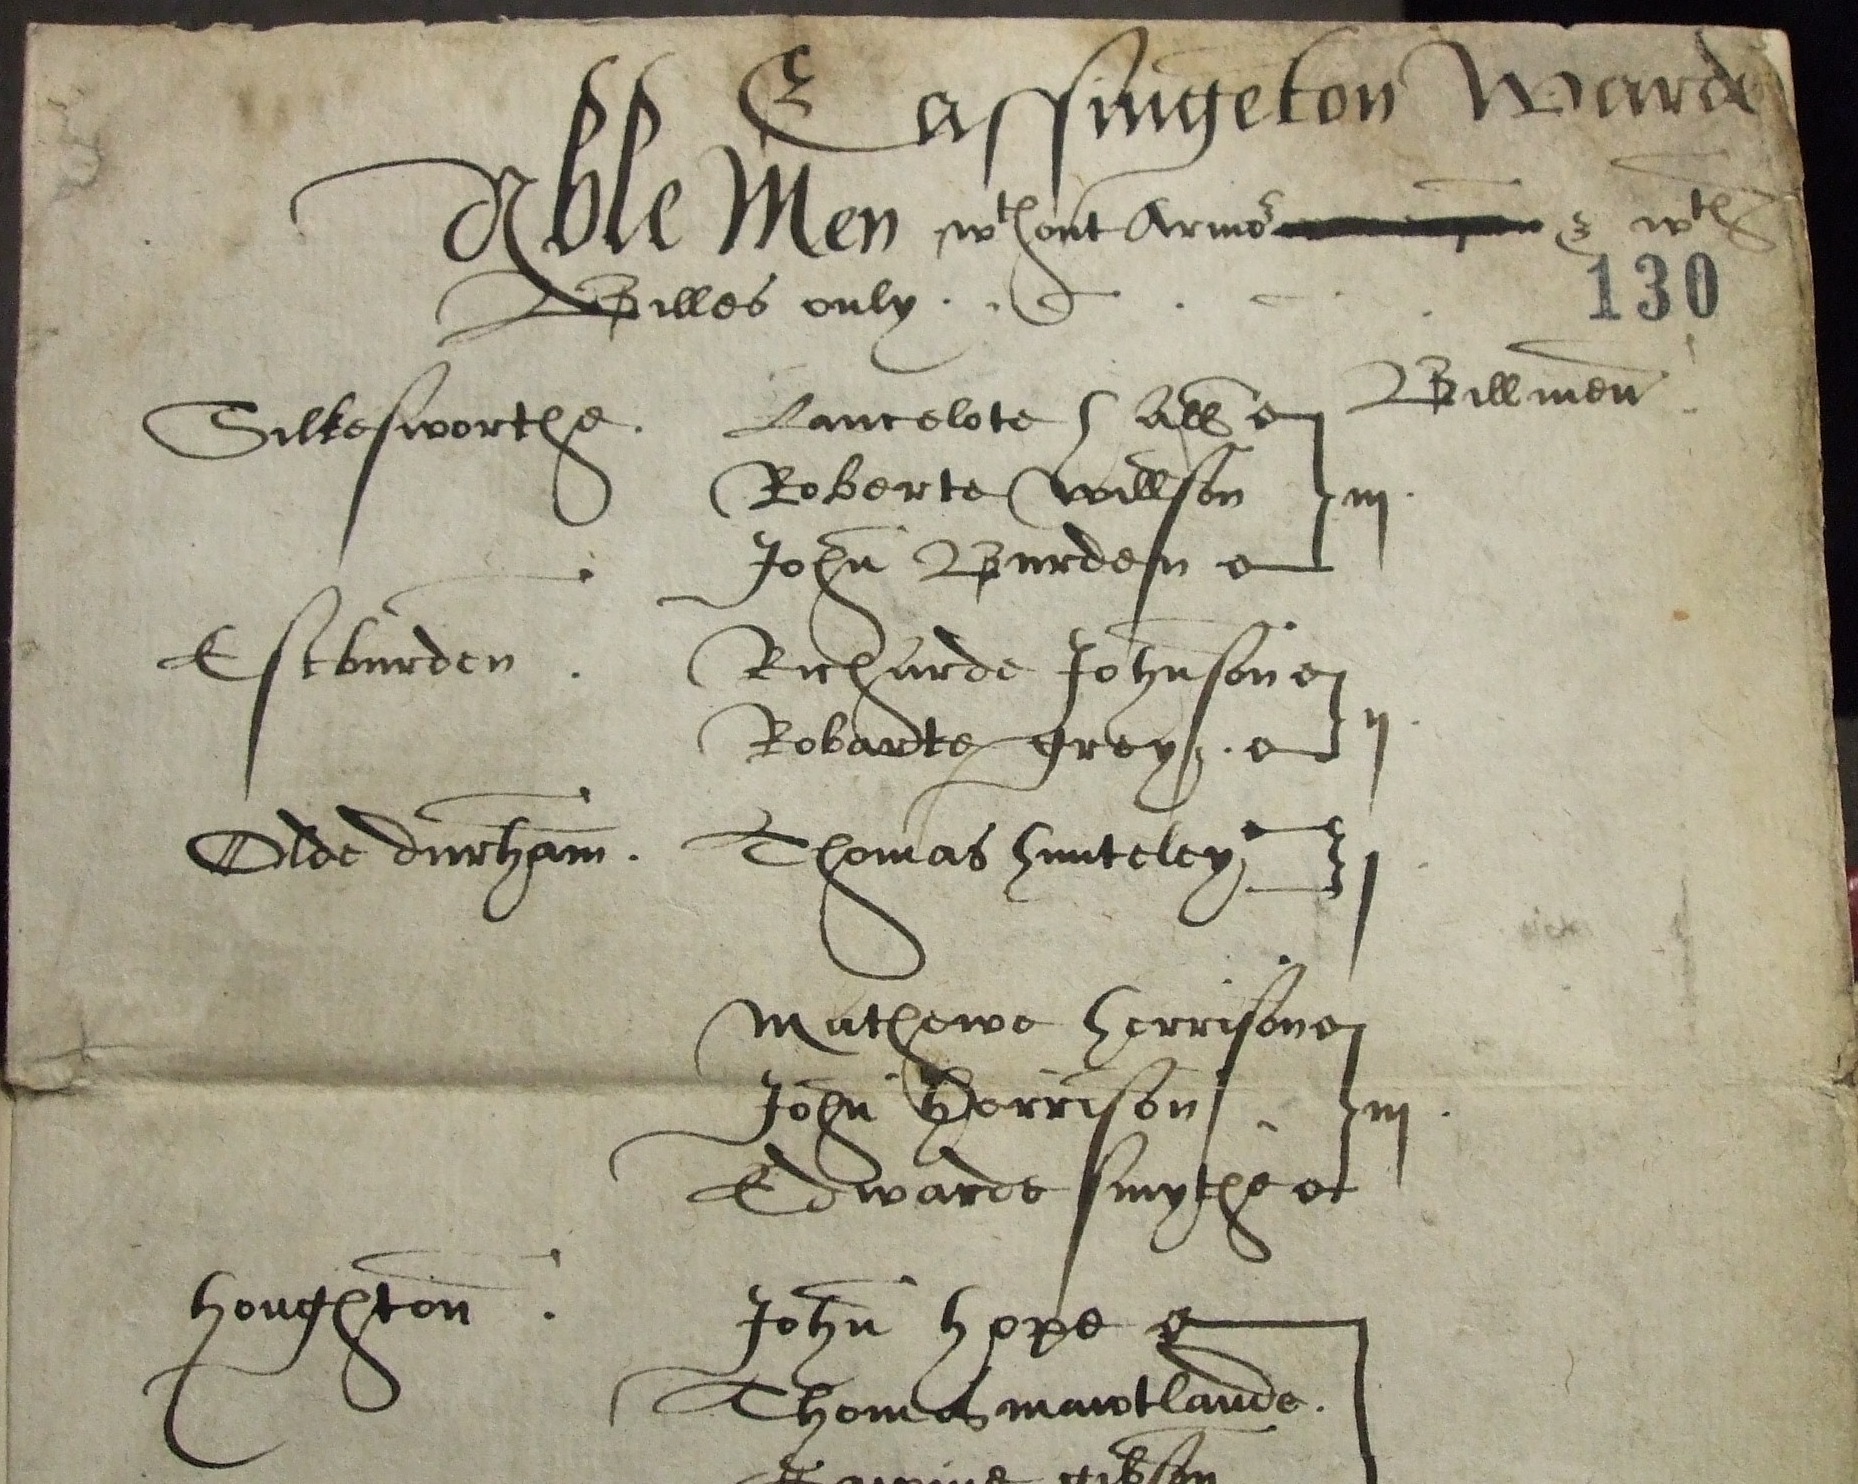 Eassingeton Warde
Able Men wthout Armor & wth
130
Billes only
Billmen
Silkesworthe. Lancelote Hall
Roberte Willson iij.
John Burden
Estburden. Richarde Johnson
Robarte grey. ij.
Olde durham. Thomas hunteley j
Mathewe herrison
John Herrison iij.
Edwarde smythe
houghton. John hope
Thomas mawtlande.
gibson